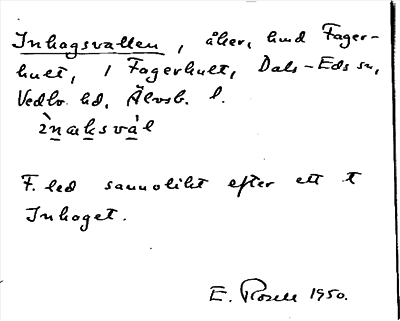 Inhagsvallen, åker, hmd Fager-
hult, 1 Fagerhult, Dals-Eds sn,
Vedbo hd, Älvsb. l.
ìnaksvàl
F. led sannolikt efter ett †
Inhaget.
E. Rosell 1950.